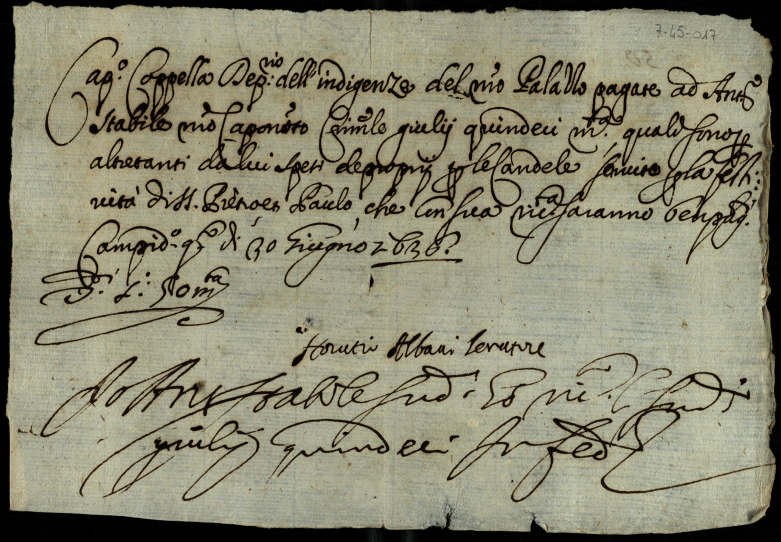 7-45-017
Cap.º Cappella Dep.rio dell'indigenze del n̄ro Palazzo pagate ad Ant.º
Stabile n̄ro giulij quindeci m.ta quali sono p
altretanti da lui spesi de proprij p le Candele servite p la festi:
vità di SS. Pietro et Paulo, che con sua saranno ben pag.
Campid.º q.º dì 30 Giugno 1636.
D. :
Horatio Albani Senatore
Io Ant.º Stabile sud.
giulij quindeci In fed